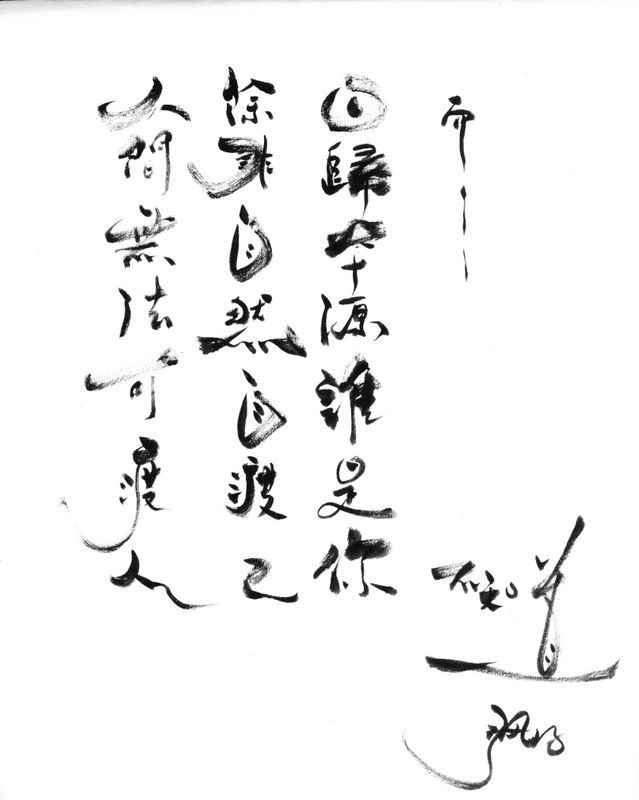 人間無法可渡人
除非自然自渡己
回歸本源誰是你
而——
不知道